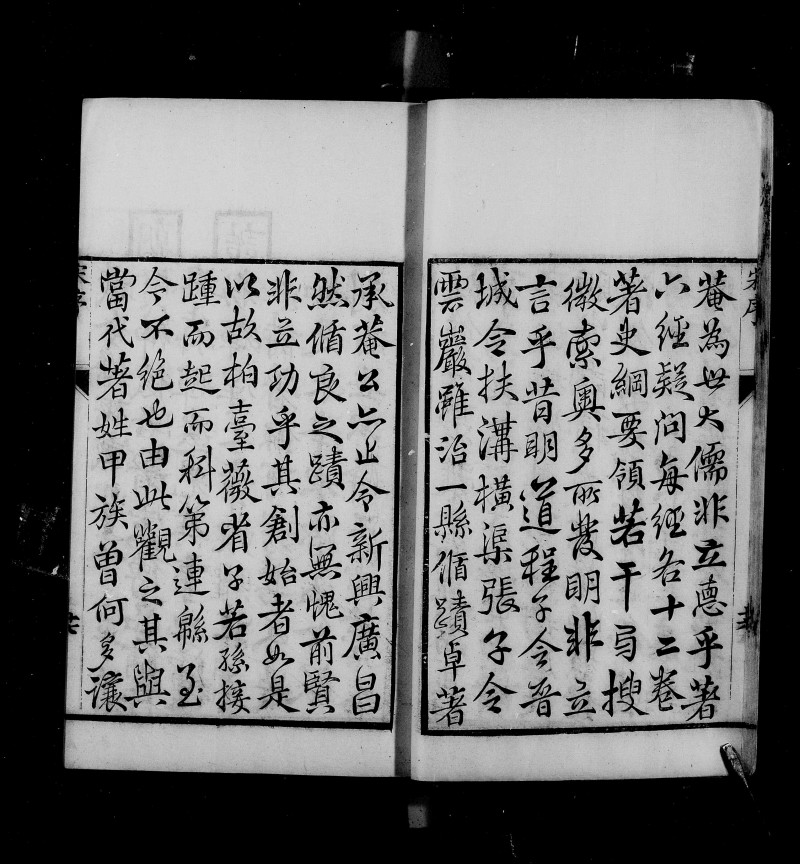 菴為世大儒非立悳乎著
六經疑问每經各十二卷
著史綱要領若干局搜
微索奧多所發明非立
言乎昔明道程子令晉
城令扶溝橫渠張子令
雲巖雖治一縣循蹟卓著
承菴公亦止令新興廣昌
然循良之蹟亦無愧前賢
非立功乎其創始者如是
以故柏臺薇省子若孫接
踵而起而科第連緜至
今不絕也由此觀之其與
當代著姓甲族曾何多讓